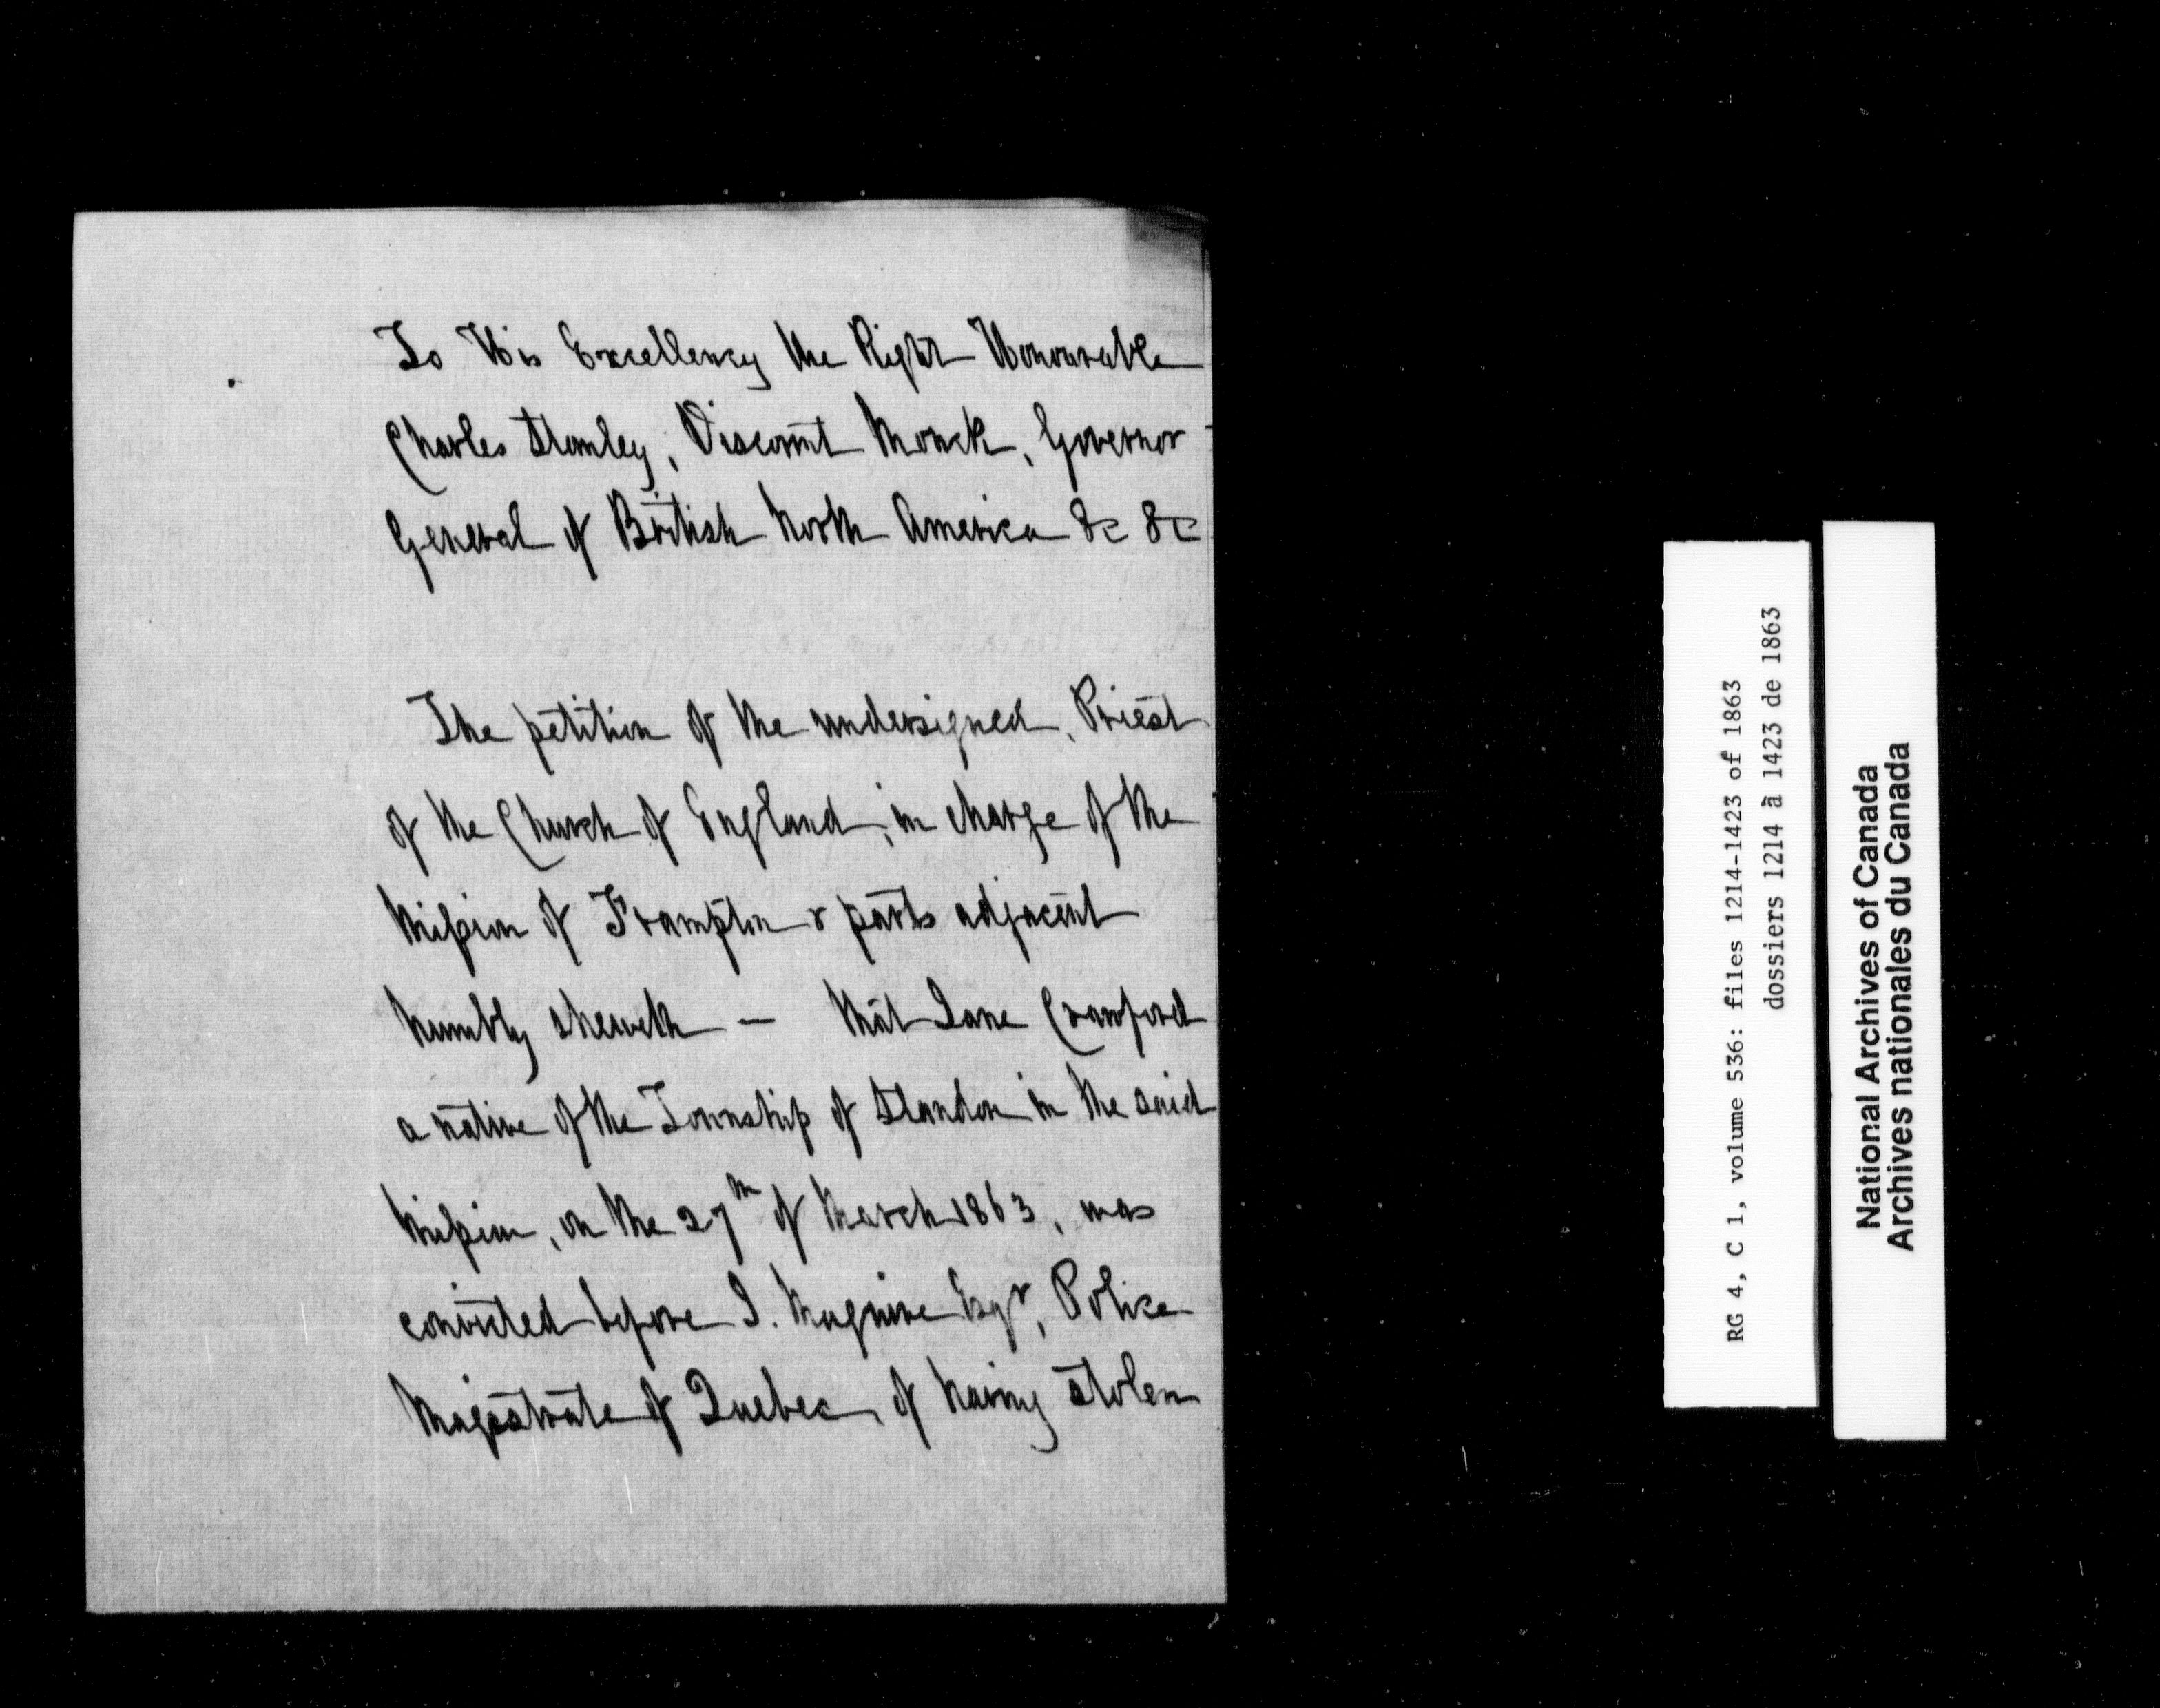 To His Excellency the Right Honourable
Charles Stanley, Viscount Monck, Governor
General of British North America &c &c
The petition of the undersigned, Priest
of the Church of England, in charge of the
Mission of Frampton & parts adjacent
humbly sheweth — that Jane Crawford
a native of the Township of Standon in the said
Mission, on the 27th of March 1863, was
convicted before J. Maguire Esqr, Police
Magistrate of Quebec, of having stolen
RG 4, C 1, volume 536: files 1214-1423 of 1863
dossiers 1214 à 1423 de 1863
National Archives of Canada
Archives nationales du Canada